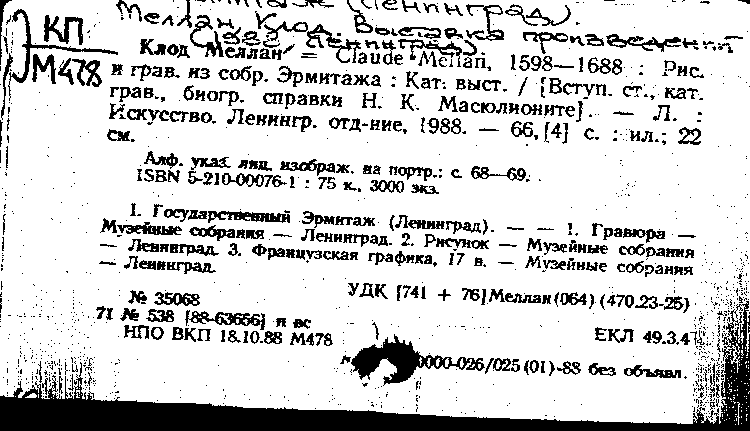 (Ленинград).
Меллан, Клод. Выставка произведений
(1988 Ленинград)
КП
М478
Клод Меллан = Claude Mellan, 1598—1688 : Рис.
и грав. из собр. Эрмитажа : Кат. выст. / [Вступ. ст., кат.
грав., биогр. справки Н. К. Масюлионите]. — Л. :
Искусство. Ленингр. отд-ние, 1988. — 66, [4] с. : ил.; 22
см.
Алф. указ. лиц, изображ. на портр.: с. 68—69.
ISBN 5-210-00076-1 : 75 к., 3000 экз.
1. Государственный Эрмитаж (Ленинград). — — 1. Гравюра —
Музейные собрания — Ленинград. 2. Рисунок — Музейные собрания
— Ленинград. 3. Французская графика, 17 в. — Музейные собрания
— Ленинград.
УДК [741 + 76] Меллан (064) (470.23-25)
№ 35068
71 № 538 [88-63656] п вс
НПО ВКП 18.10.88 М478
ЕКЛ 49.3.4
0000-026/025 (01)-88 без объявл.